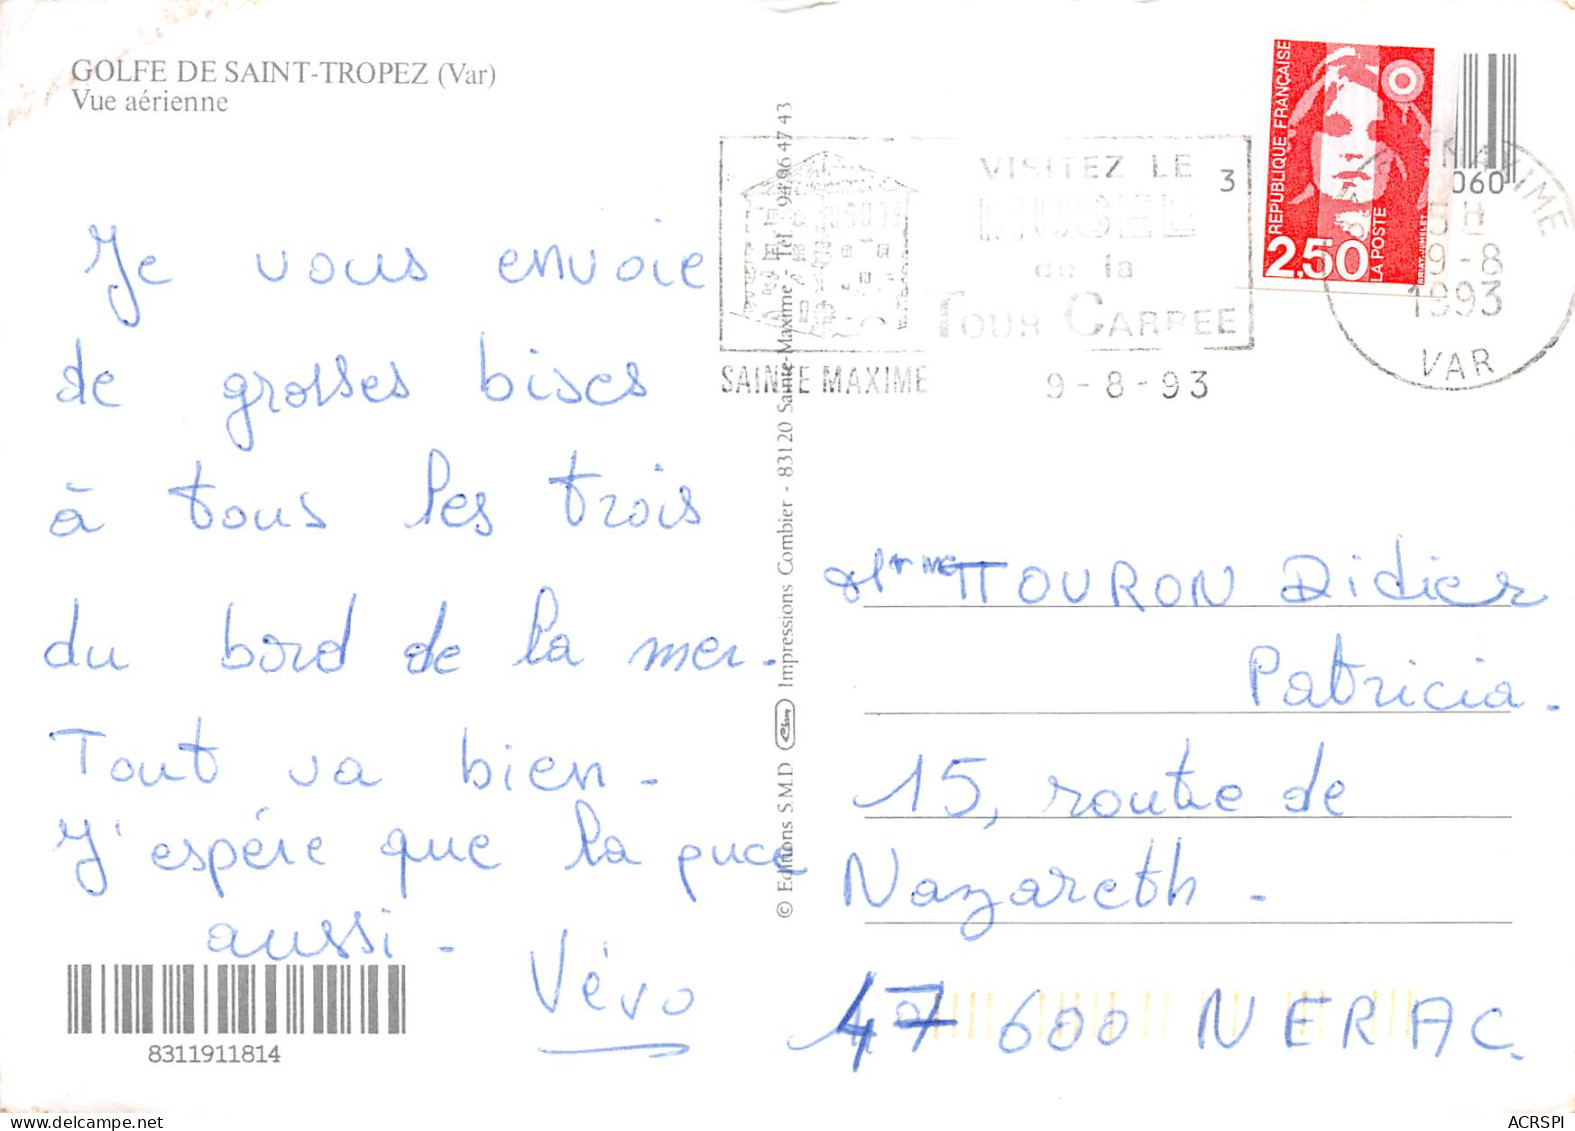 GOLFE DE SAINT-TROPEZ (Var)
Vue aérienne
Je vous envoie
de grosses bises
à tous les trois
du bord de la mer.
Tout va bien.
J'espère que la puce
aussi.
Vévo
8311911814
© Editions S.M.D. Impressions Combier - 83120 Sainte-Maxime - Tél. 94 96 47 43
VISITEZ LE
MUSEE
de la
TOUR CARREE
3
SAINTE MAXIME
9-8-93
REPUBLIQUE FRANÇAISE
2,50
LA POSTE
BRIAT.JUMELET
060
MAXIME
5H
9-8
1993
VAR
TOURON Didier
Patricia.
15, route de
Nazareth.
47 600 NERAC.
ACRSPI